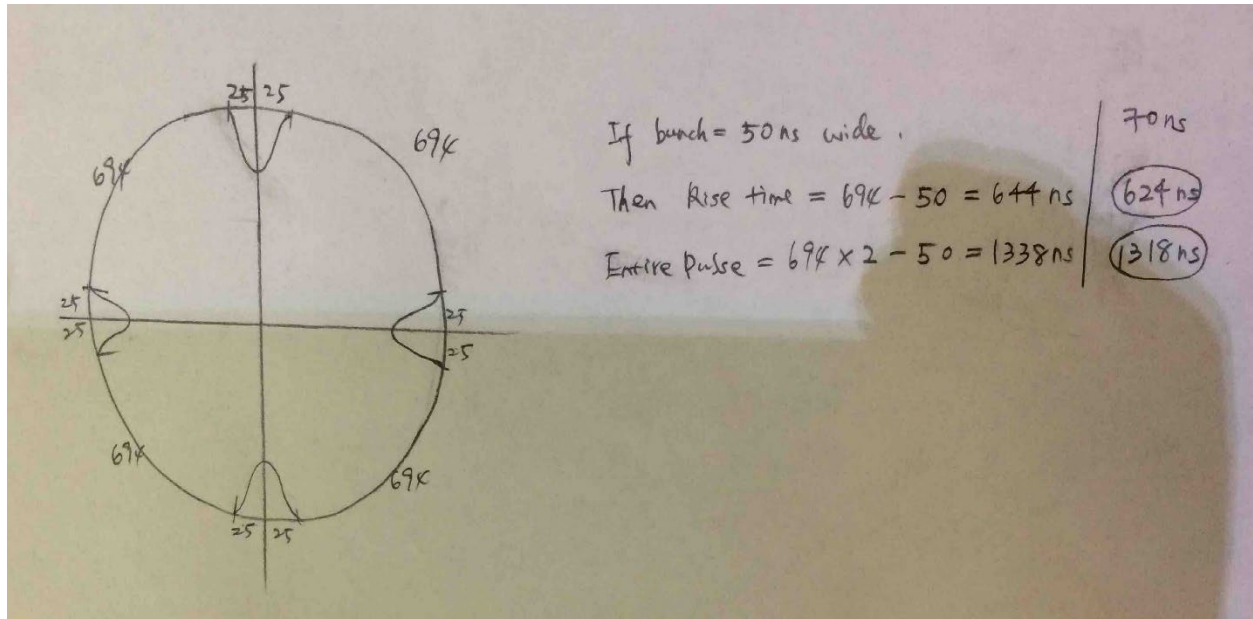 25 25
694
694
25
25
25
25
694
694
25 25
If bunch = 50ns wide.
Then Rise time = 694 - 50 = 644 ns
Entire Pulse = 694 x 2 - 50 = 1338ns
70ns
624 ns
1318ns